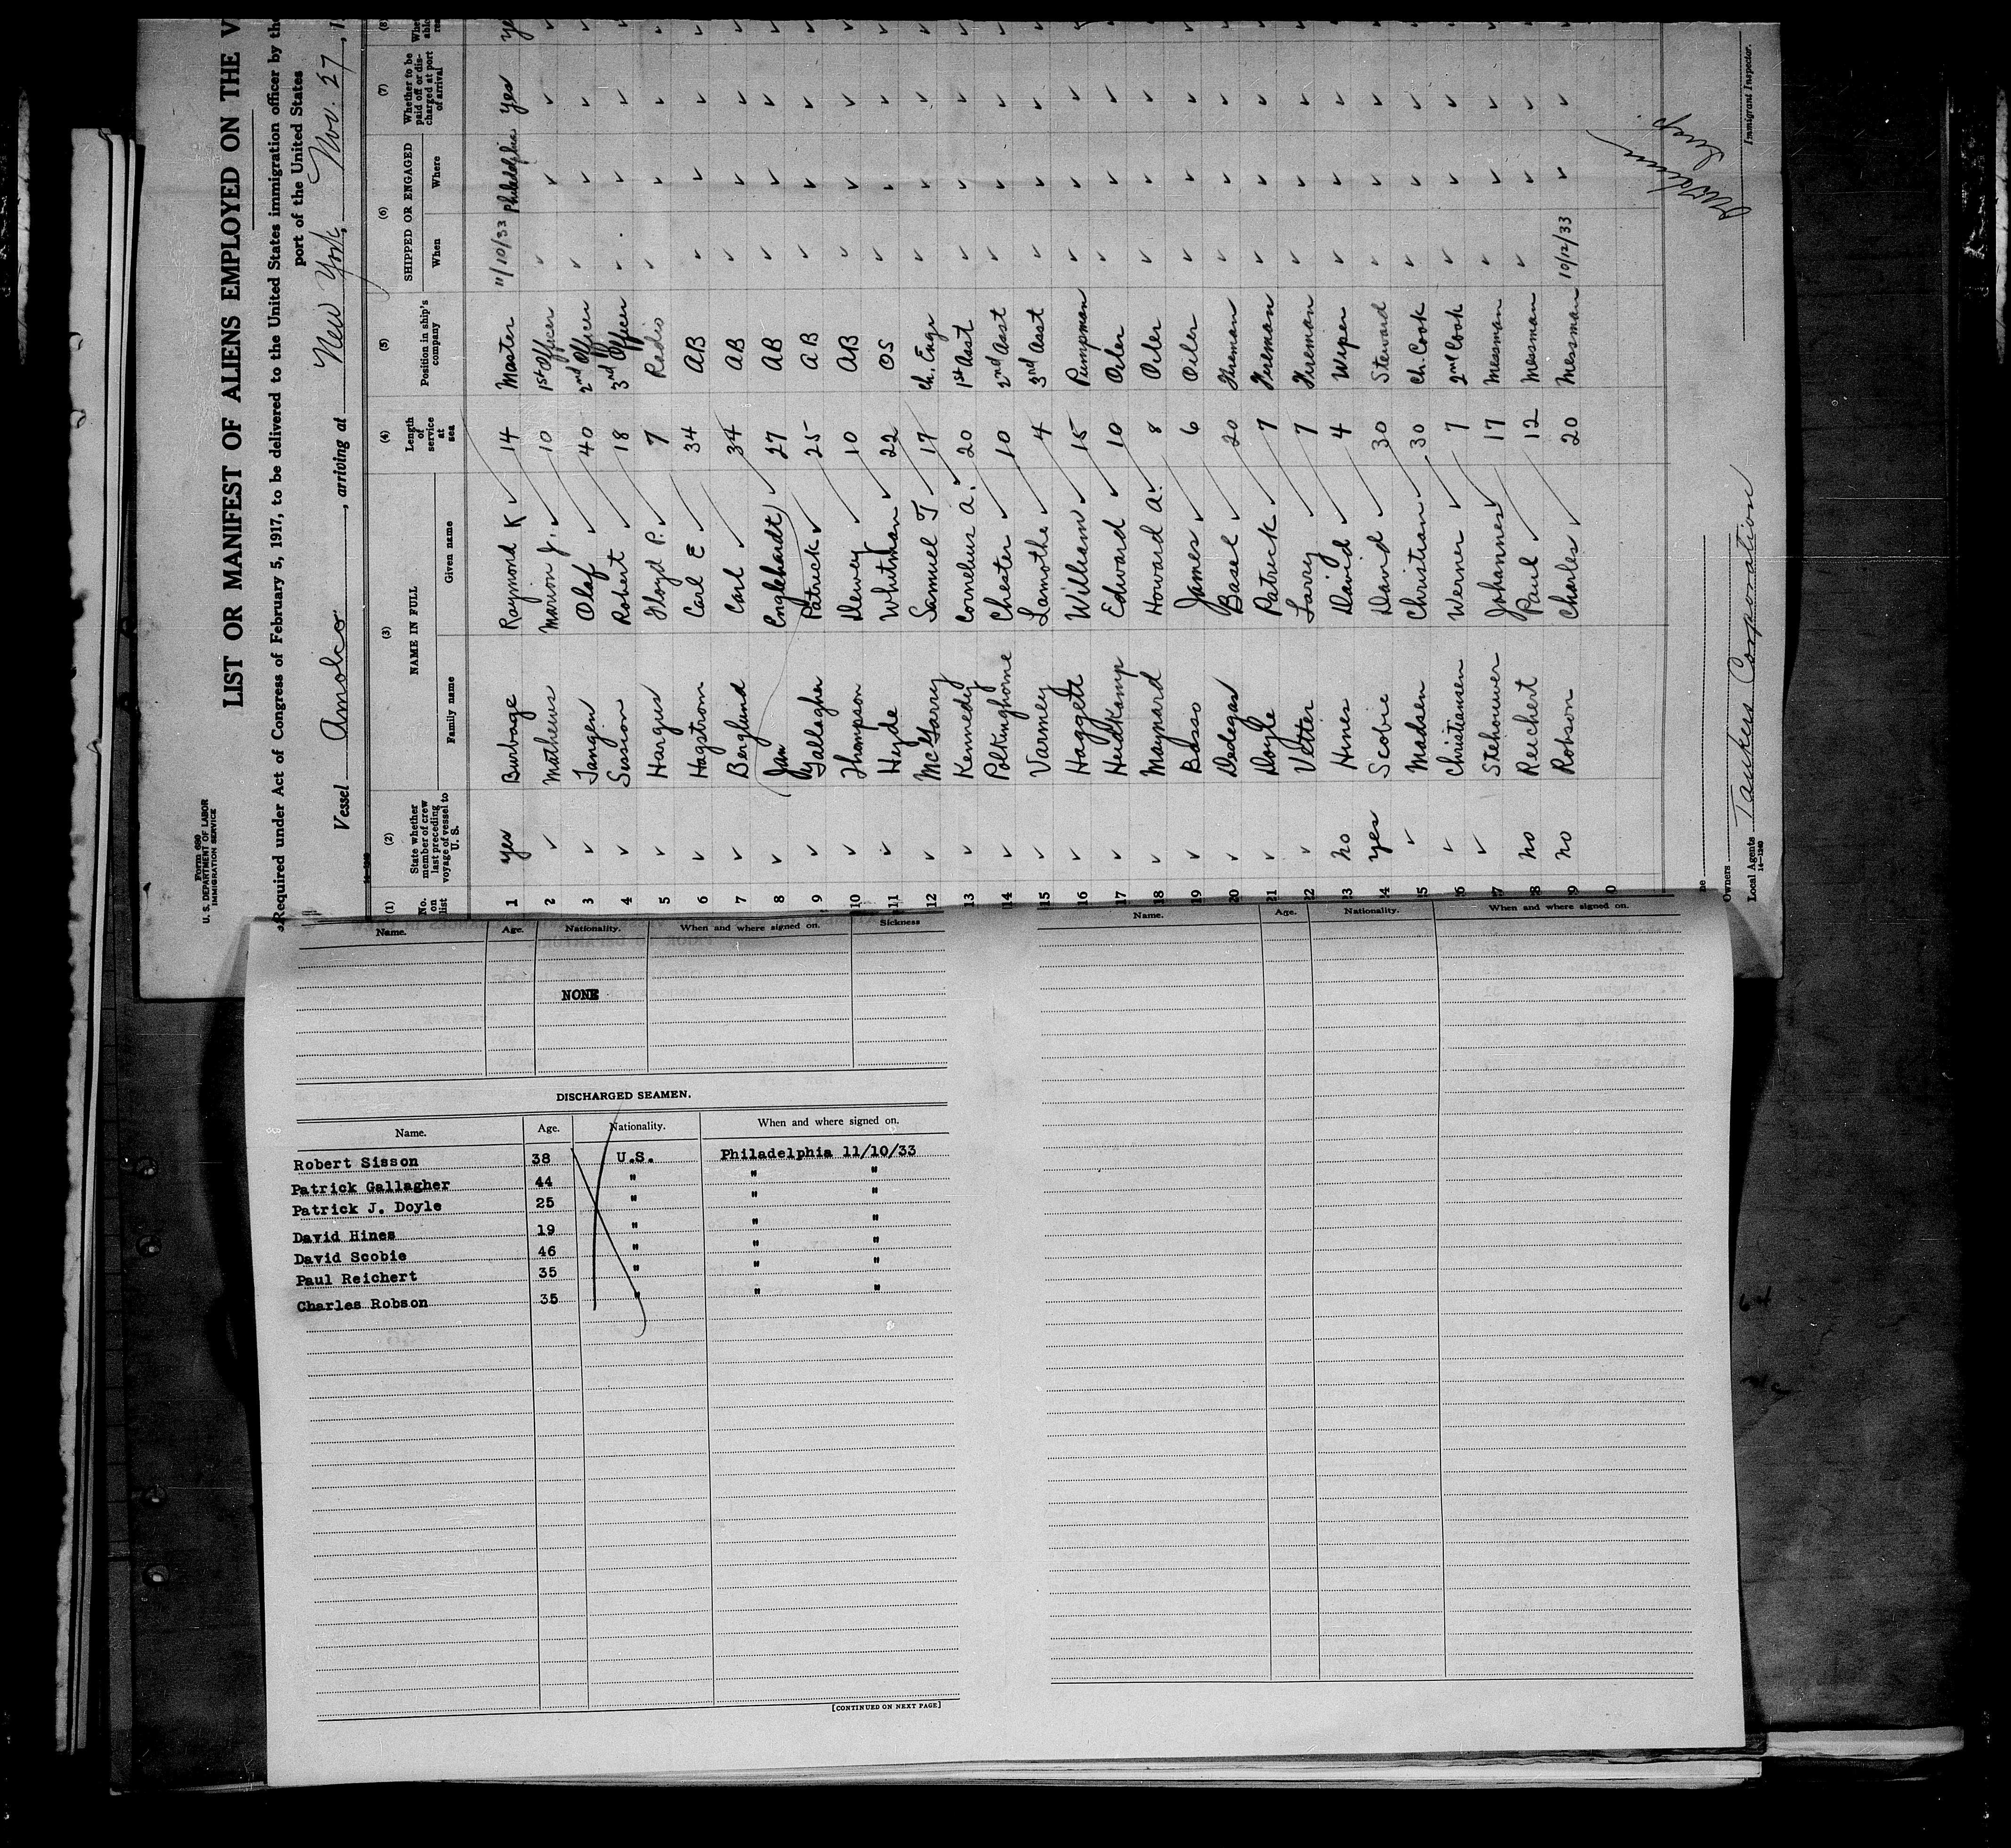 Form 680
U. S. DEPARTMENT OF LABOR
IMMIGRATION SERVICE
LIST OR MANIFEST OF ALIENS EMPLOYED ON THE V
Required under Act of Congress of February 5, 1917, to be delivered to the United States immigration officer by the
port of the United States
Vessel Amolco, arriving at New York, Nov. 27, 1
(1) (2) (3) (4) (5) (6) (7) (8)
No. on list State whether member of crew last preceding voyage of vessel to U. S. NAME IN FULL Length of service at sea Position in ship's company SHIPPED OR ENGAGED Whether to be paid off or discharged at port of arrival
Family name Given name When Where
1 yes Burbage Raymond K 14 Master 11/10/33 Philadelphia Yes
2 ✓ Mathews Marion J. 10 1st Officer ✓ ✓ ✓
3 ✓ Tangen Olaf 40 2nd Officer ✓ ✓ ✓
4 ✓ Sission Robert 18 3rd Officer ✓ ✓ ✓
5 ✓ Hargus Floyd P. 7 Radio ✓ ✓ ✓
6 ✓ Hagstrom Carl E 34 AB ✓ ✓ ✓
7 ✓ Berglund Carl 34 AB ✓ ✓ ✓
8 ✓ Jan Englehardt 27 AB ✓ ✓ ✓
9 ✓ Gallagher Patrick 25 AB ✓ ✓ ✓
10 ✓ Thompson Dewey 10 AB ✓ ✓ ✓
11 ✓ Heyde Whitman 22 OS ✓ ✓ ✓
12 ✓ McGarry Samuel T 17 Ch. Engr ✓ ✓ ✓
13 ✓ Kennedy Cornelius A. 20 1st Asst ✓ ✓ ✓
14 ✓ Polkinghorne Chester 10 2nd Asst ✓ ✓ ✓
15 ✓ Varmey Lamothe 4 3rd Asst ✓ ✓ ✓
16 ✓ Haggett William 15 Pumpman ✓ ✓ ✓
17 ✓ Heidkamp Edward 10 Oiler ✓ ✓ ✓
18 ✓ Maynard Howard A. 8 Oiler ✓ ✓ ✓
19 ✓ Basso James 6 Oiler ✓ ✓ ✓
20 ✓ Dedegas Basel 20 Fireman ✓ ✓ ✓
21 ✓ Doyle Patrick 7 Fireman ✓ ✓ ✓
22 ✓ Vetter Larry 7 Fireman ✓ ✓ ✓
23 no Hines David 4 Wiper ✓ ✓ ✓
24 yes Scobie David 30 Steward ✓ ✓ ✓
25 ✓ Madsen Christian 30 Ch. Cook ✓ ✓ ✓
26 ✓ Christiansen Werner 7 2nd Cook ✓ ✓ ✓
27 ✓ Stehouwer Johannes 17 Messman ✓ ✓ ✓
28 no Reichert Paul 12 Messman ✓ ✓ ✓
29 no Robson Charles 20 Messman 10/12/33 ✓ ✓
Owners
Local Agents Tankers Corporation
14-1240
Insp.
Immigrant Inspector.
Name. Age. Nationality. When and where signed on. Sickness
NONE
DISCHARGED SEAMEN.
Name. Age. Nationality. When and where signed on.
Robert Sisson 38 U.S. Philadelphia 11/10/33
Patrick Gallagher 44 " " "
Patrick J. Doyle 25 " " "
David Hines 19 " " "
David Scobie 46 " " "
Paul Reichert 35 " " "
Charles Robson 35 " " "
[CONTINUED ON NEXT PAGE]
Name. Age. Nationality. When and where signed on.